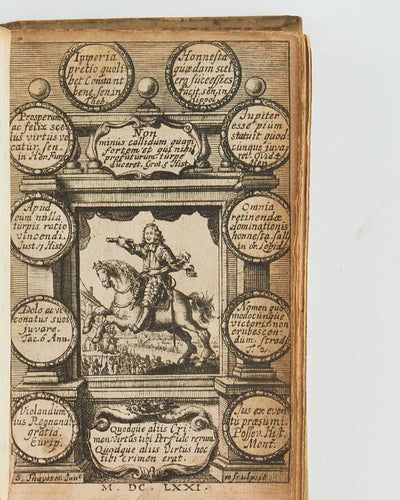 Imperia
pretio quoli
bet Constant
bene, sen. in
Theb.
Honnesta
quædam scel
era successus
facit, sen. in
Hippol.
Prosperum
ac felix sce
lus virtus vo
catur, sen.
in Her. fur.
Non
minus callidum quam
fortem et qui nihil
profuturum turpe
duceret. Grot. 8 Hist.
Jupiter
esse pium
statuit quod
cunque juva
ret. Ovid. 4
Apud
eum nulla
turpis ratio
vincendi.
Just. 7 Hist.
Omnia
retinendæ
dominationis
honnesta sall.
in or. Lepid.
Dolo ac vi
conatus suos
juvare.
Tac. 6 Ann.
Nomen quo
modocunque
victoriæ non
erubescen
dum. strad.
Violandum
ius Regnandi
gratia.
Eurip.
Quodque aliis Cri
men Virtus tibi Perfide rerum
Quodque aliis Virtus hoc
tibi crimen erat.
Jus ex even
tu præsumi.
Possev. Hist.
Mont.
S. Thayssen Inv.
et sculpsit.
M. DC. LXXI.